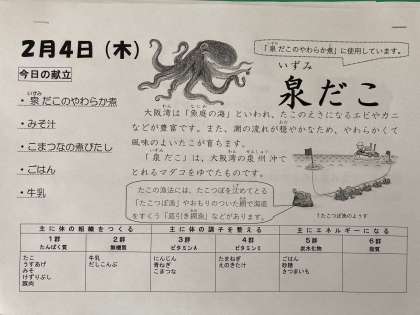 2月4日(木)
今日の献立
・泉だこのやわらか煮
いずみ
・みそ汁
・こまつなの煮びたし
・ごはん
・牛乳
いずみ
「泉だこのやわらか煮」に使用しています。
いずみ
泉だこ
大阪湾は「魚庭の海」といわれ、たこのえさになるエビやカニ
などが豊富です。また、潮の流れが穏やかなため、やわらかくて
風味のよいたこが育ちます。
「泉だこ」は、大阪湾の泉州沖で
とれるマダコをゆでたものです。
たこの漁法には、たこつぼを沈めてとる
「たこつぼ漁」やおもりのついた網で海底
をすくう「底引き網漁」などがあります。
↑たこつぼ漁のようす
主に体の組織をつくる
主に体の調子を整える
主にエネルギーになる
1群
たんぱく質
2群
無機質
3群
ビタミンA
4群
ビタミンC
5群
炭水化物
6群
脂質
たこ
うすあげ
みそ
けずりぶし
豚肉
牛乳
だしこんぶ
にんじん
青ねぎ
こまつな
たまねぎ
えのきたけ
ごはん
砂糖
さつまいも